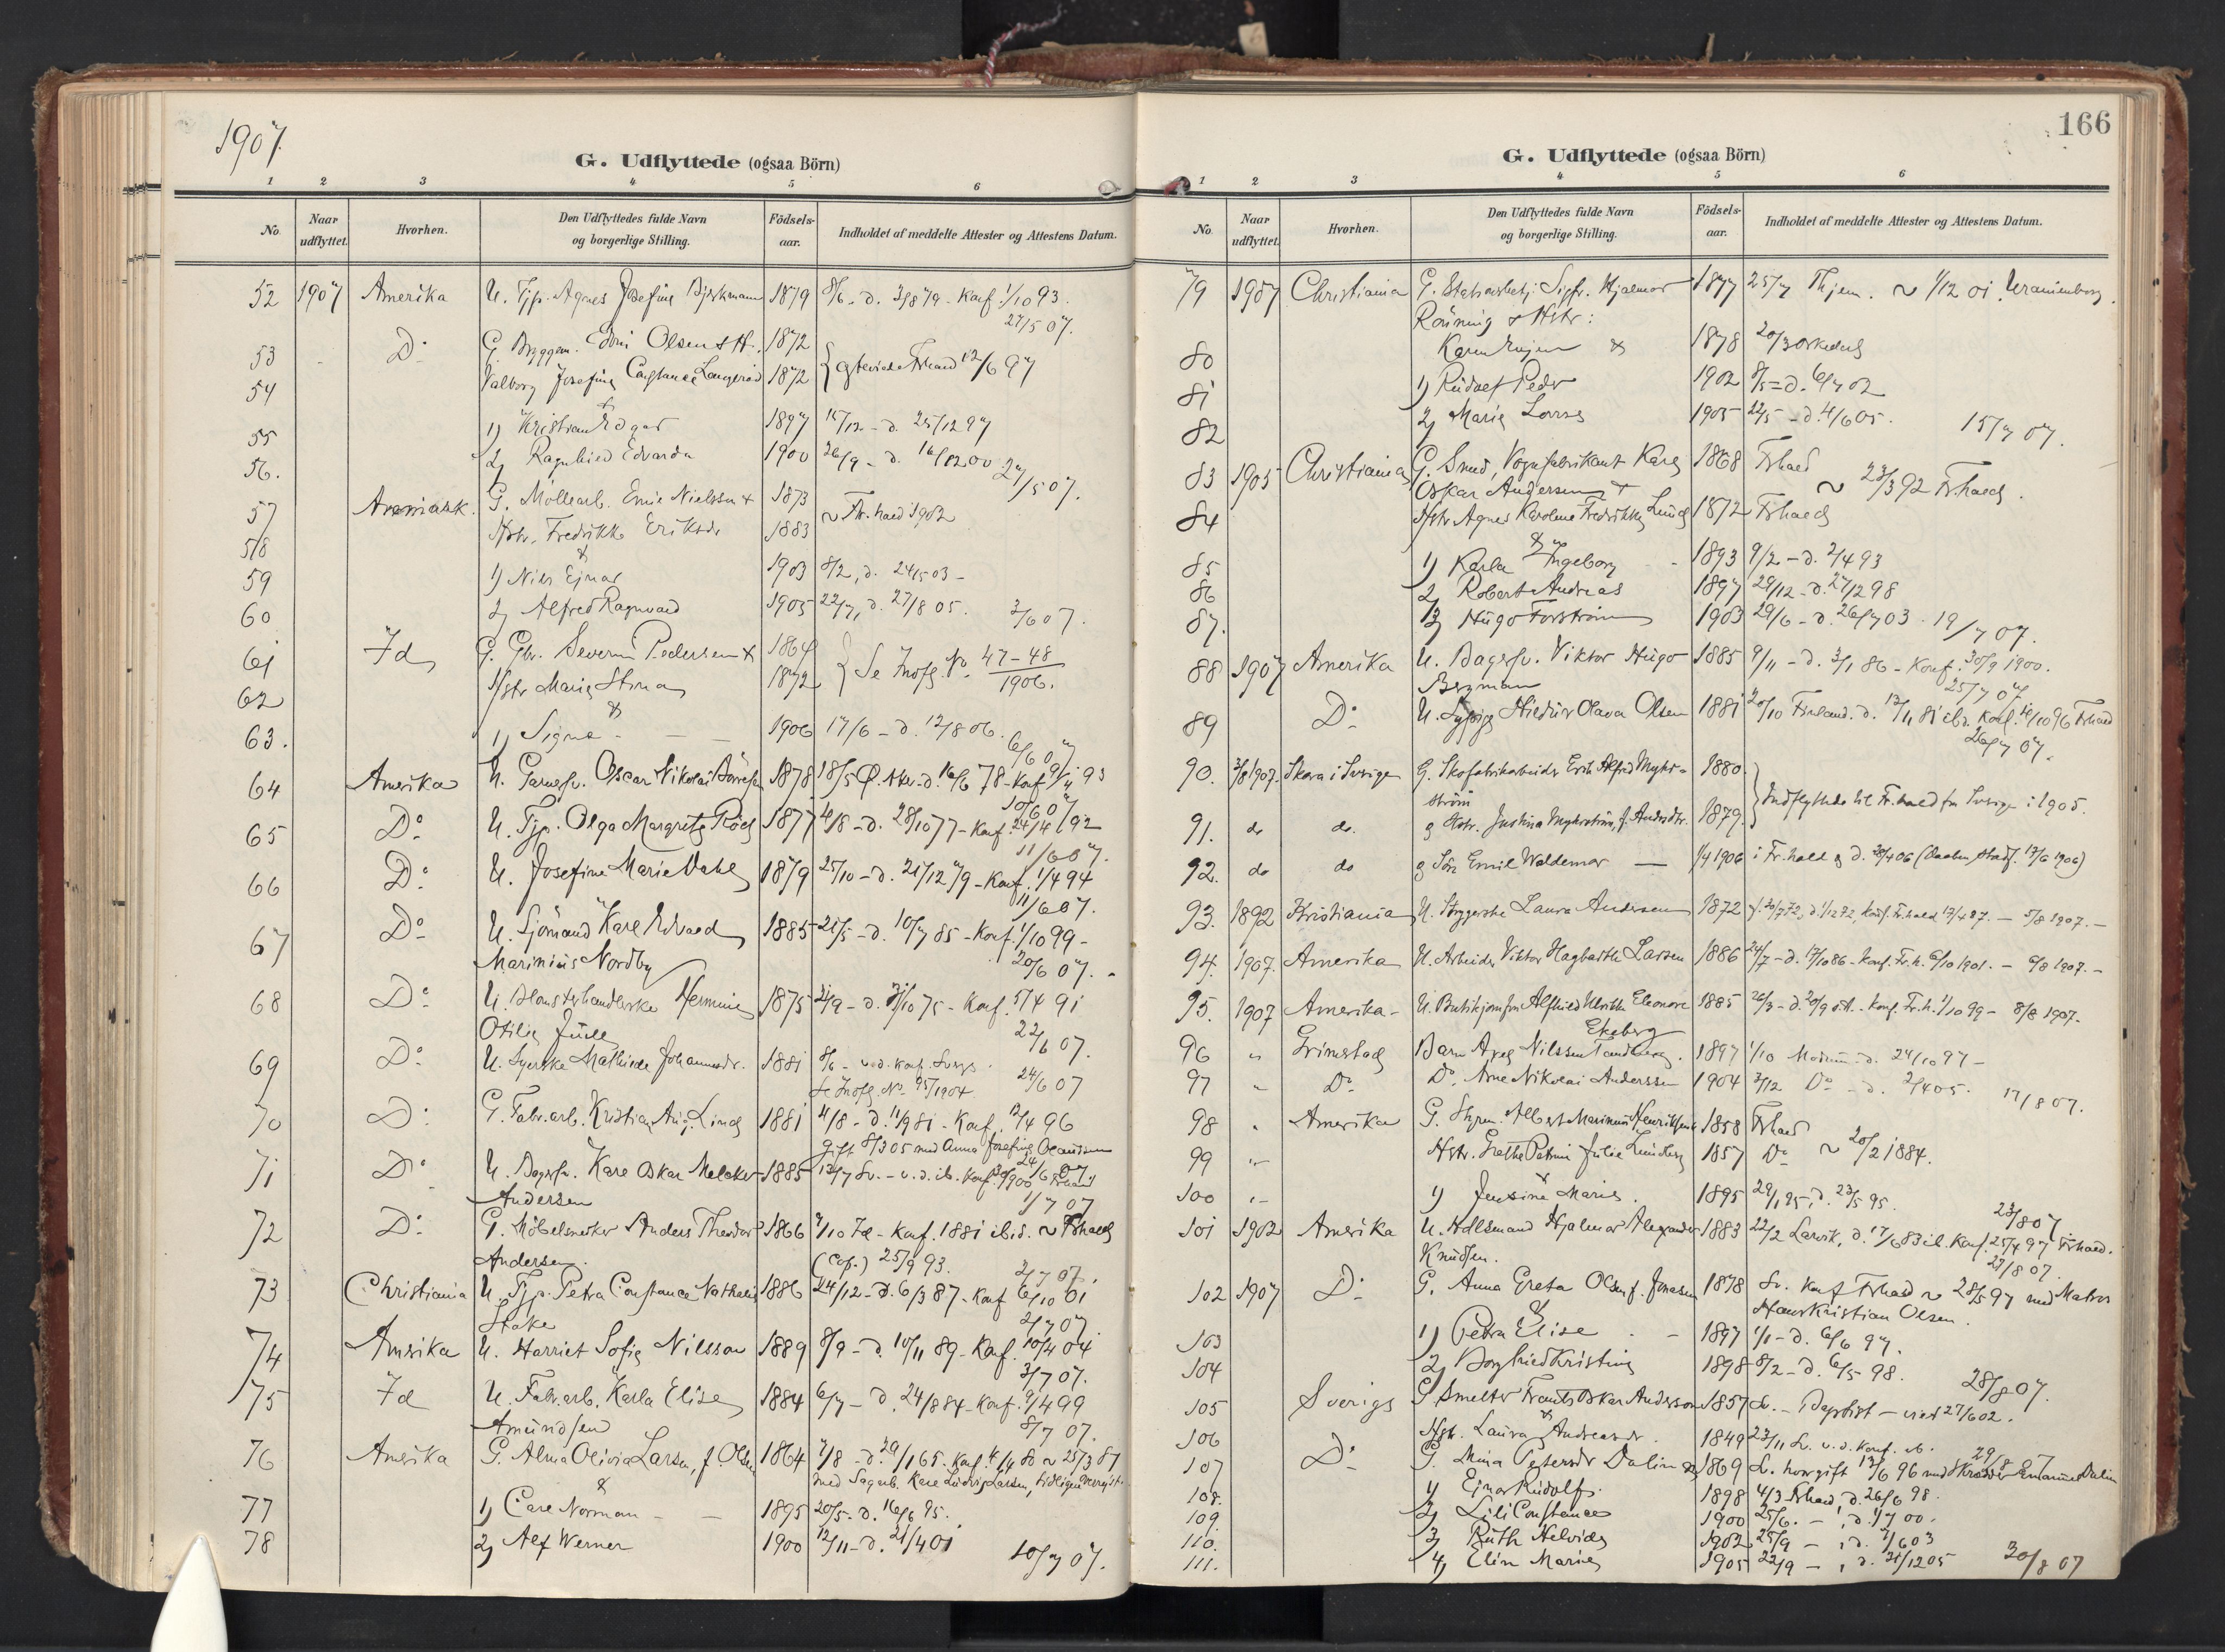 1907.
G. Udflyttede (ogsaa Börn)
1 2 3 4 5 6
No. Naar udflyttet. Hvorhen. Den Udflyttedes fulde Navn og borgerlige Stilling. Födsels-aar. Indholdet af meddelte Attester og Attestens Datum.
52 1907 Amerika U. Tjp. Agnes Josefine Bjerkmann 1879 8/6 - d. 3/8 79 - Konf. 1/10 93.
27/5 07.
53 Do G. Byggem. Edvin Olsen & H. 1872
54 Valborg Josefine Constance Langerød 1872 12/6 97
&
55 1) Kristian Edgar 1897 15/12 - d. 25/12 97
56. 2) Ragnhild Edvarda 1900 26/9 - d. 16/12 00 27/5 07.
57 G. Möllearb. Emil Nielsen & 1873
58 Hstr. Fredrikke Eriksdr 1883 ~ Fr.hald 1902
&
59 1) Nils Ejnar 1903 8/2, d. 24/5 03 -
60 2) Alfred Ragnvald 1905 22/7, d. 27/8 05. 3/6 07.
61 Id G. Gbr. Severin Pedersen & 1864
62 Hstr Marie Stina 1872 Se Indfl. No. 47-48 1906.
&
63. 1) Signe - - 1906 17/6 - d. 12/8 06. 6/6 07
64 Amerika U. Oscar Nikolai 1878 18/5 d. 16/6 78 - Konf 9/4 93
10/6 07
65 Do U. Tjp. Olga Margrete 1877 4/8 - d. 28/10 77 - Konf. 24/4 92
11/6 07.
66 Do U. Josefine Marie Dahl 1879 25/10 - d. 21/12 79 - Konf. 1/4 94
11/6 07.
67 Do U. Sjömand Karl Edvard 1885 21/5 - d. 10/7 85 - Konf. 1/10 99 -
Marinius Nordby 20/6 07.
68 Do U. Blomsterhandlerske Hermine 1875 d. 31/10 75 - Konf. 5/4 91
Otilie Juell 22/6 07.
69 Do U. Syerske Mathilde Johannesdr. 1881 8/6 - v. d. Konf. Sverge
Se Indfl. No 95/1904 24/6 07
70 Do G. Fabr.arb. Kristian Aug. Lind 1881 4/8 - d. 11/9 81 - Konf. 12/4 96
Gift 8/3 05 med Anna Josefine
71 Do U. Bagersv. Karl Oskar Melcker 1885 13/7 Sv. - v. d. ib. Konf. 30/9 1900 Frhald
Andersen 1/7 07
72 Do G. Möbelsnekker Anders Theodor 1866 7/10 Id - Konf. 1881 ibid. ~ Frhald
Andersen. 25/9 93. 2/7 07.
73 Christiania U. Tjp. Petra Constance Nathalie 1886 24/12 - d. 6/3 87 - Konf 6/10 01
Stake 2/7 07.
74 Amerika U. Harriet Sofie Nilsson 1889 8/9 - d. 10/11 89 - Konf. 10/4 04
3/7 07.
75 Id U. Fabr.arb. Karla Elise 1884 6/7 - d. 24/8 84 - Konf. 9/4 99
Amundsen 8/7 07.
76 Amerika G. Alma Olivia Larsen, f. Olsen 1864 7/8 - d. 29/1 65. Konf. 4/4 80 ~ 25/3 87
& med Sagarb. Karl Ludvig Larsen,
77 1) Carl Norman - - 1895 20/5 - d. 16/6 95.
78 2) Alf Werner 1900 12/11 - d. 21/4 01 10/7 07.
166
G. Udflyttede (ogsaa Börn)
1 2 3 4 5 6
No. Naar udflyttet. Hvorhen. Den Udflyttedes fulde Navn og borgerlige Stilling. Födsels-aar. Indholdet af meddelte Attester og Attestens Datum.
79 1907 Christiania G. Stationsbetj. Sigfr. Hjalmar 1877 25/7 Thjem. ~ 1/12 01 Uranienborg.
Rönning & Hstr:
80 Karen & 1878 20/3
81 1) Rudolf Peder 1902 8/5 = d. 6/7 02
82 2) Marie Lovise 1905 22/5 - d. 4/6 05. 15/7 07.
83 1905 Christiania G. Smed, Vognfabrikant Karl 1868 Frhald
Oskar Andersen & ~ 23/3 92 Fr.hald.
84 Hstr Agnes Karoline Fredrikke Lund 1872 Frhald
&
85 1) Karla Ingeborg - 1893 9/2 - d. 2/4 93
86 2) Robert Andreas 1897 29/12 - d. 27/2 98
87. 3) Hugo Forström 1903 29/6 - d. 26/7 03. 19/7 07.
88 1907 Amerika U. Bagersv. Viktor Hugo 1885 9/11 - d. 3/1 86 - Konf. 30/9 1900.
Bergman 25/7 07
89 Do U. Sypige Hildur Olava Olsen 1881 20/10 d. 13/11 81 ibd. Konf. 4/10 96 Frhald
26/7 07.
90. 3/8 1907. Skara i Sverige G. Skofabrikarbeider Erik Alfred Myhr- 1880.
ström Indflyttede til Fr.hald fra Sverige i 1905.
91. do do. g Hstr. Justina Myhrström, f. Andersdtr. 1879.
92. do do g Sön Emil Waldemar - 1/4 1906 i Fr.hald
93. 1892 Kristiania U. Strygerske Laura Andersen 1872 f. 20/7 72, d. 1/12 72, Konf. Fr.hald 17/4 87. - 5/8 1907. -
94. 1907. Amerika U. Arbeider Viktor Hagbarth Larsen 1886 24/7 - d. 17/10 86 - Konf. Fr.h. 6/10 1901. - 6/8 1907. -
95. 1907 Amerika - U. Butikjomfru Alfhild Ulrikke Eleonore 1885 26/3 - d. 20/9 Konf. Fr.h. 1/10 99 - 8/8 1907.
Ekeberg
96 " Grimstad Barn Axel Nilssen Tandberg. 1897 1/10 Modum d. 24/10 97 -
97 " Do Do. Arne Nikolai Anderssen 1904 3/12 Do - d. 2/4 05. 17/8 07.
98 " Amerika G. Styrm. Albert Marinius Henriksen & 1858 Frhald
99 " Hstr. Grethe Petrine Julie Lundberg 1857 Do ~ 20/2 1884.
&
100 " 1) Jensine Marie. 1895 29/1 95, d. 23/5 95. 23/8 07
101 1902 Amerika U. Hjalmar Alexander 1883 22/2 Larvik, d. 17/6 83 ib. Konf. 25/4 97 Frhald.
Knudsen. 27/8 07
102 1907 Do G. Anna Greta Olsen f. Jonasen 1878 Sv. Konf Frhald ~ 28/5 97 med Matros
& Hans Kristian Olsen.
103 1) Petra Elise - 1897 1/1 - d. 6/6 97.
104 2) Borghild Kristine 1898 8/2 - d. 6/5 98. 28/8 07.
105 Sverige G Smelter Frants Oskar Andersson 1857 Sv. - Baptist - viet 27/6 02.
106 Hstr. Laura Andreasdr. 1849 23/11 Sv. v. d. Konf. ib. 29/8 07
107 Do G. Mina Petersdr Dalin & 1869 Sv. borg.gift 13/6 96 med Skrædder Emanuel Dalin
108. 1) Ejnar Rudolf. 1898 4/3 Frhald, d. 26/6 98.
109. 2) Lili Constance 1900 25/6. - , d. 1/7 00.
110. 3) Ruth Helvida 1902 25/9 - , d. 7/6 03
111. 4) Elin Marie 1905 22/9 - , d. 31/12 05 30/8 07